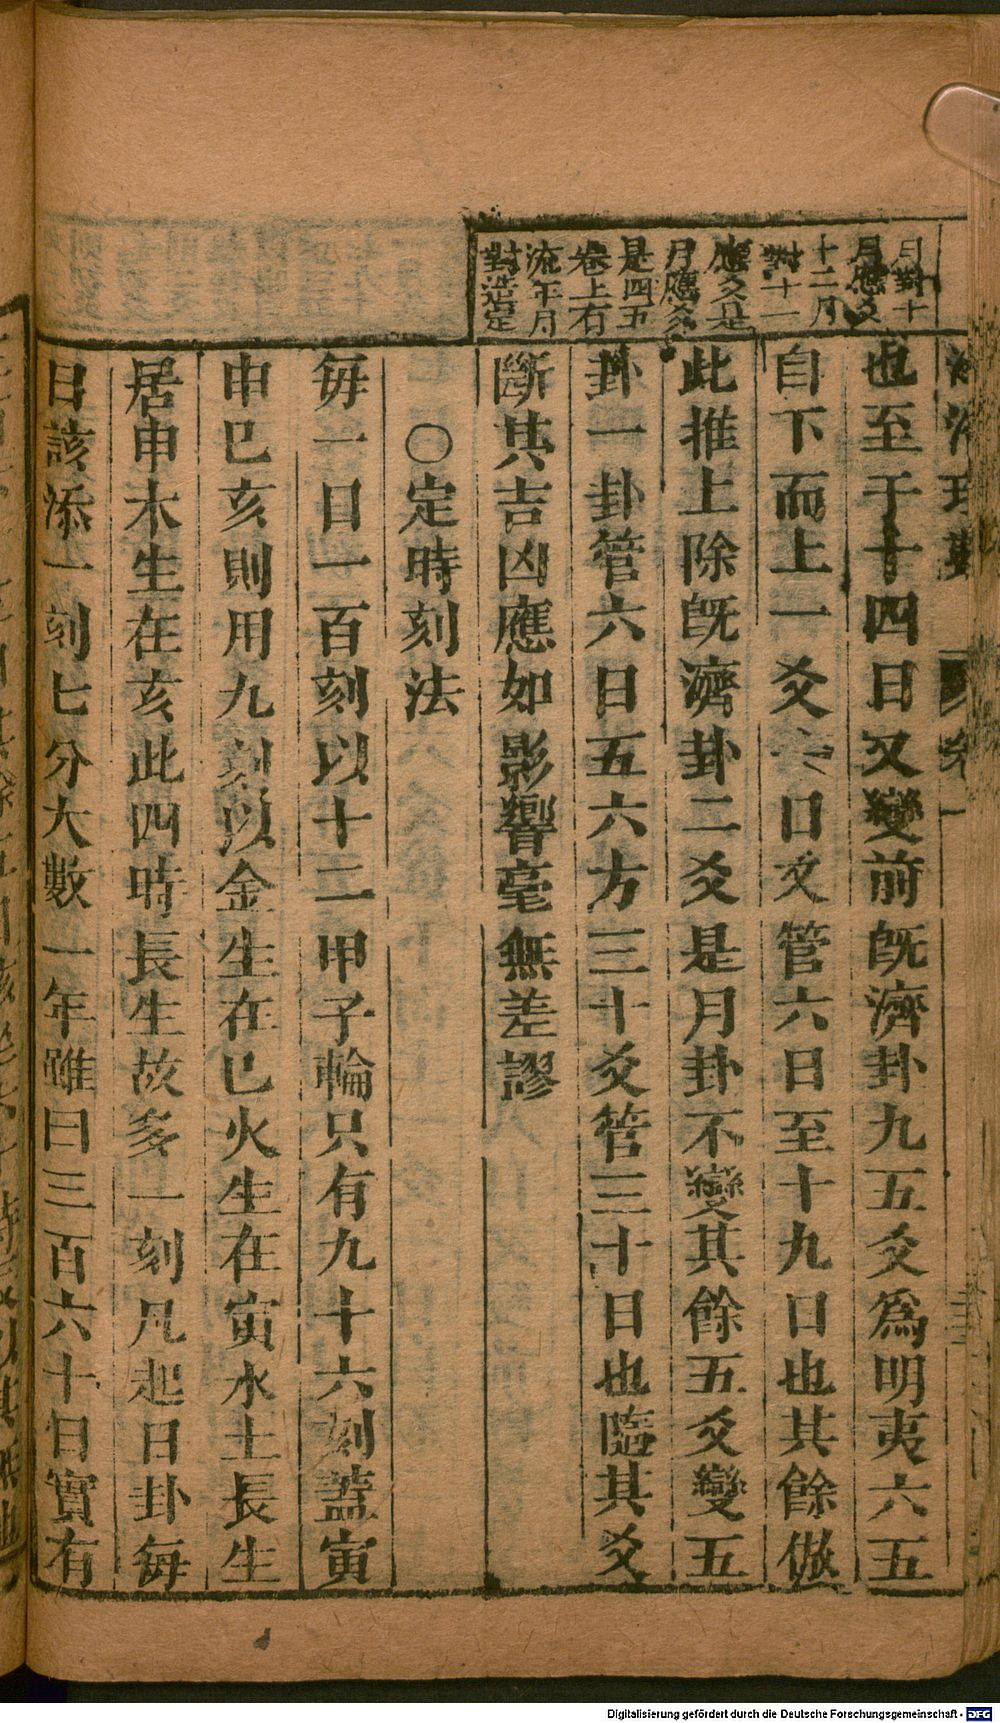 月對十
月應爻
十二月
對十一
應爻是
月應爻
是四五
卷上有
流年月
對造定
也至于十四日又變前旣濟卦九五爻爲明夷六五
自下而上一爻六日爻管六日至十九日也其餘倣
此推上除旣濟卦二爻是月卦不變其餘五爻變五
卦一卦管六日五六方三十爻管三十日也臨其爻
斷其吉凶應如影響毫無差謬
〇定時刻法
每一日一百刻以十二甲子輪只有九十六刻蓋寅
申巳亥則用九刻以金生在巳火生在寅水土長生
居申木生在亥此四時長生故多一刻凡起日卦每
日該添一刻七分大數一年雖曰三百六十日實有
Digitalisierung gefördert durch die Deutsche Forschungsgemeinschaft - DFG